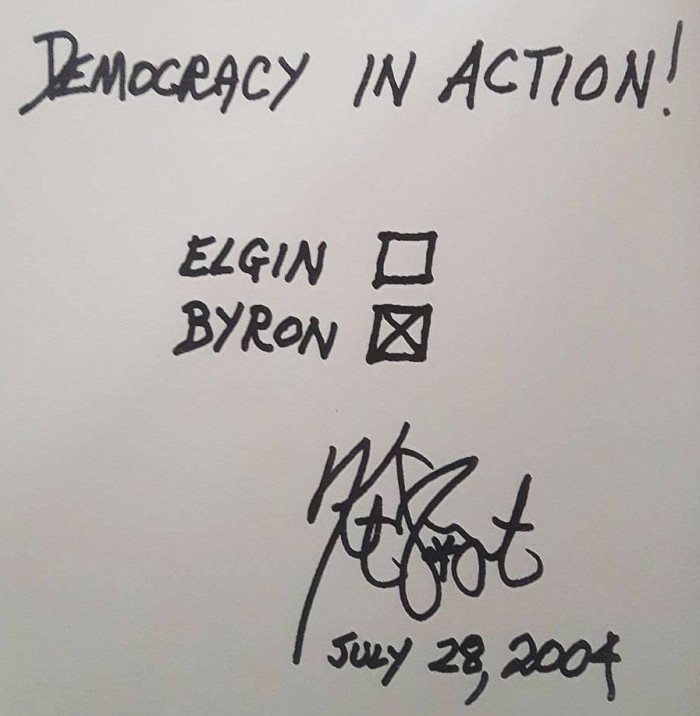 DEMOCRACY IN ACTION!
ELGIN
BYRON
JULY 28, 2004